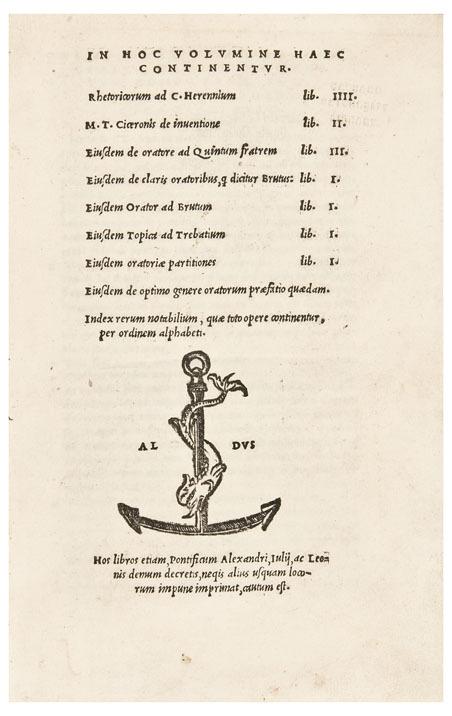 IN HOC VOLVMINE HAEC
CONTINENTVR.
Rhetoricorum ad C. Herennium lib. IIII.
M. T. Ciceronis de inuentione lib. II.
Eiuſdem de oratore ad Quintum fratrem lib. III.
Eiuſdem de claris oratoribus, q dicitur Brutus: lib. I.
Eiuſdem Orator ad Brutum lib. I.
Eiuſdem Topica ad Trebatium lib. I.
Eiuſdem oratoriæ partitiones lib. I.
Eiuſdem de optimo genere oratorum præfatio quædam.
Index rerum notabilium, quæ toto opere continentur,
per ordinem alphabeti.
AL DVS
Hos libros etiam, Pontificum Alexandri, Iulij, ac Leo=
nis demum decretis, neqis alius uſquam loco=
rum impune imprimat, cautum eſt.